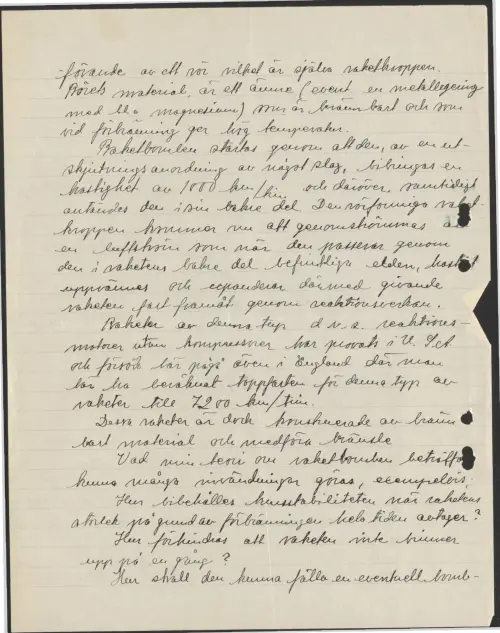 -förande av ett rör vilket är själva raketkroppen.
Rörets material är ett ämne (event en metallegering
med bl. a magnesium) som är brännbart och som
vid förbränning ger hög temperatur.
Raketbomben startas genom att den, av en ut-
skjutningsanordning av något slag, bibringas en
hastighet av 1000 km/tim. och däröver, samtidigt
antändes den i sin bakre del. Den rörformiga raket-
kroppen kommer nu att genomströmmas av
en luftström som när den passerar genom
den i raketens bakre del befintliga elden, hastigt
uppvärmes och expanderar därmed givande
raketen fart framåt genom reaktionsverkan.
Raketer av denna typ d.v.s. reaktions-
motorer utan kompressorer har provats i U.S.A
och försök lär pågå även i England där man
lär ha beräknat toppfarten för denna typ av
raketer till 7200 km/tim.
Dessa raketer är dock konstruerade av bränn
bart material och medföra bränsle
Vad min teori om raketbomben beträffar
kunna många invändningar göras, exempelvis:
Hur bibehålles kursstabiliteten när raketens
storlek på grund av förbränningen hela tiden avtager?
Hur förhindras att raketen inte brinner
upp på en gång?
Hur skall den kunna fälla en eventuell bomb-